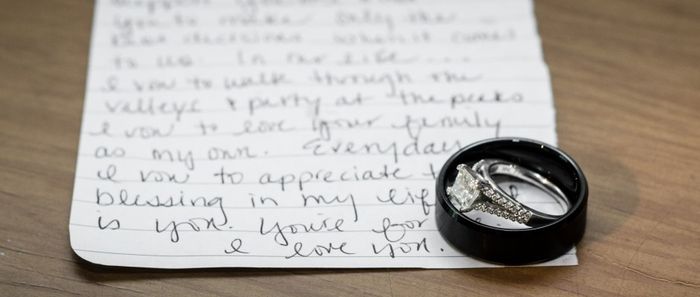 you to make only the
best decisions when it comes
to us. In our life....
I vow to walk through the
valleys & party at the peaks
I vow to love your family
as my own. Everyday
I vow to appreciate
blessing in my life
is you. You're
I love you.